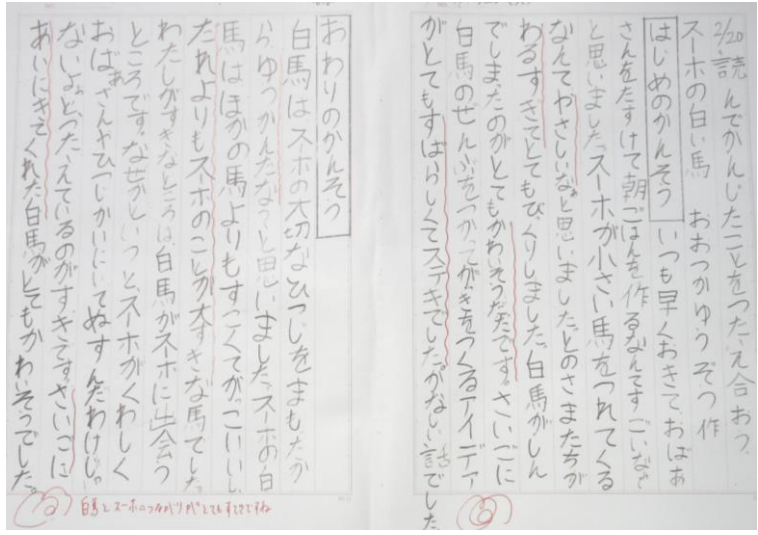 2/20 読んでかんじたことをつたえ合おう
スーホの白い馬 おおつかゆうぞう 作
はじめのかんそう いつも早くおきて、おばあ
さんをたすけて朝ごはんを作るなんてすごいなあ
と思いました。スーホが小さい馬をつれてくる
なんてやさしいなぁと思いました。とのさまたちが
わるすぎてとてもびっくりしました。白馬がしん
でしまったのがとてもかわいそうだったです。さいごに
白馬のぜんぶをつかってがっきをつくるアイデア
がとてもすばらしくてステキでした。かなしい話でした
おわりのかんそう
白馬はスーホの大切なひつじをまもったか
ら、ゆうかんだなぁと思いました。スーホの白
馬はほかの馬よりもすごくてかっこいいし
だれよりもスーホのことが大すきな馬でした。
わたしがすきなところは、白馬がスーホに出会う
ところです。なぜかというと、スーホがくわしく
おばあさんやひつじかいにいてぬすんだわけじゃ
ないよぉと、つたえているのがすきです。さいごに
あいにきてくれた白馬がとてもかわいそうでした。
白馬とスーホのつながりがとてもすてきですね